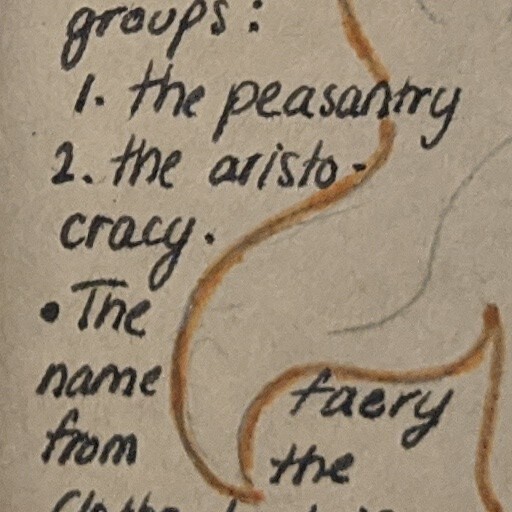 groups:
1. the peasantry
2. the aristo-
cracy.
• The
name faery
from the